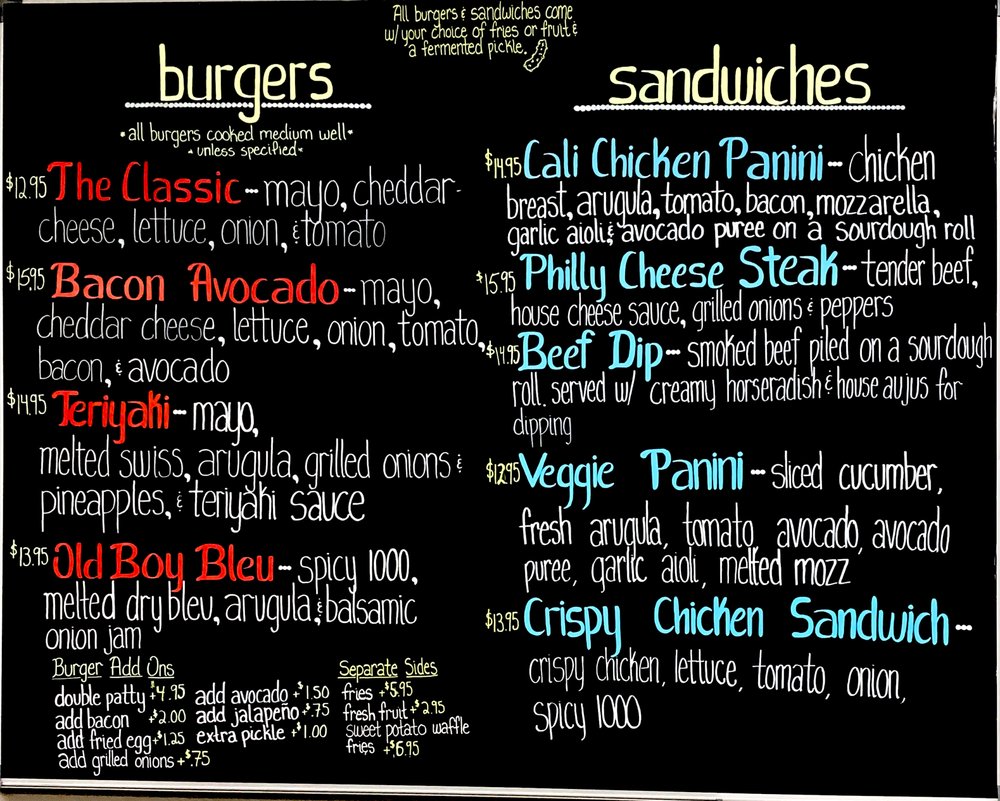 All burgers & sandwiches come
w/ your choice of fries or fruit &
a fermented pickle.
burgers
*all burgers cooked medium well*
*unless specified*
$12.95 The Classic - mayo, cheddar
cheese, lettuce, onion, & tomato
$15.95 Bacon Avocado - mayo,
cheddar cheese, lettuce, onion, tomato,
bacon, & avocado
$14.95 Teriyaki - mayo,
melted swiss, arugula, grilled onions &
pineapples, & teriyaki sauce
$13.95 Old Boy Bleu - spicy 1000,
melted dry bleu, arugula, & balsamic
onion jam
Burger Add Ons
double patty +$4.95
add bacon +$2.00
add fried egg +$1.25
add grilled onions +$.75
add avocado +$1.50
add jalapeño +$.75
extra pickle +$1.00
Separate Sides
fries +$5.95
fresh fruit +$2.95
sweet potato waffle
fries +$6.95
sandwiches
$14.95 Cali Chicken Panini - chicken
breast, arugula, tomato, bacon, mozzarella,
garlic aioli & avocado puree on a sourdough roll
$15.95 Philly Cheese Steak - tender beef,
house cheese sauce, grilled onions & peppers
$14.95 Beef Dip - smoked beef piled on a sourdough
roll. served w/ creamy horseradish & house au jus for
dipping
$12.95 Veggie Panini - sliced cucumber,
fresh arugula, tomato, avocado, avocado
puree, garlic aioli, melted mozz
$13.95 Crispy Chicken Sandwich -
crispy chicken, lettuce, tomato, onion,
spicy 1000